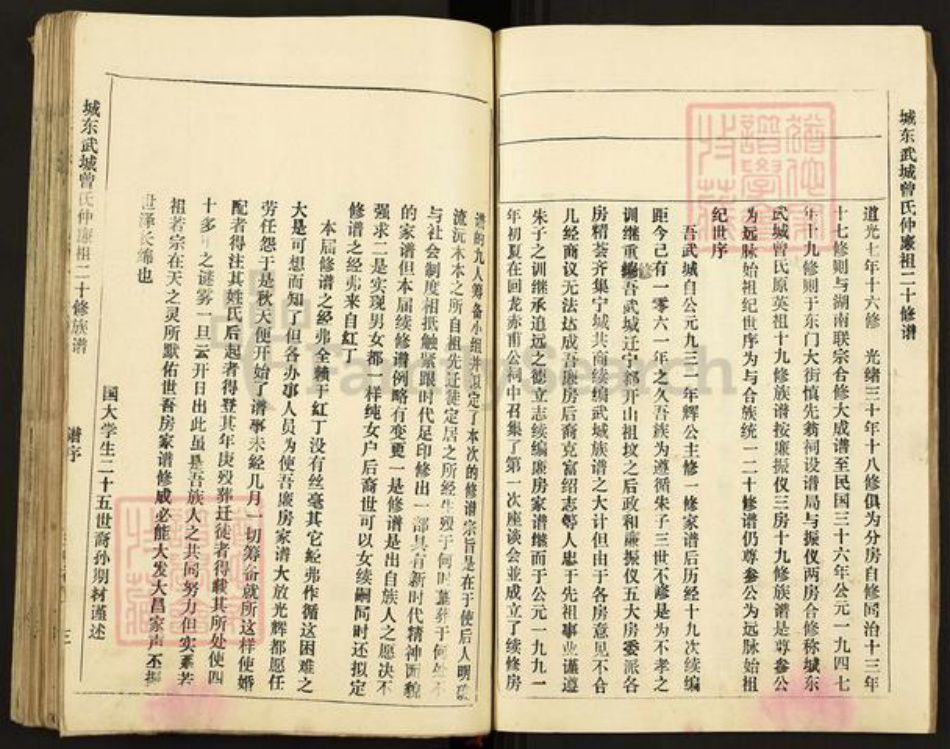 城东武城曾氏仲廉祖二十修谱
道光七年十六修 光绪三十年十八修俱为分房自修同治十三年
十七修则与湖南联宗合修大成谱至民国三十六年公元一九四七
年十九修则于东门大街慎先翁祠设谱局与振仪两房合修称城东
武城曾氏原英祖十九修族谱按廉振仪三房十九修族谱是尊参公
为远脉始祖纪世序为与合族统一二十修谱仍尊参公为远脉始祖
纪世序
吾武城自公元九三一年辉公主修一修家谱后历经十九次续编
距今已有一零六一年之久吾族为遵循朱子三世不谚是为不孝之
训继重编修吾武城迁宁都开山祖坟之后政和廉振仪五大房委派各
房精荟齐集宁城共商续编武城族谱之大计但由于各房意见不合
几经商议无法达成吾廉房后裔克富绍志等人忠于先祖事业谨遵
朱子之训继承追远之德立志续编廉房家谱继而于公元一九九一
年初夏在回龙赤甫公祠中召集了第一次座谈会並成立了续修房
谱的九人筹备小组并拟定了本次的修谱宗旨是在于使后人明
流沅木本之所自祖先迁徒定居之所经生殁于何时墓葬于何处不
与社会制度相抵触紧跟时代足印修出一部具有新时代精神面貌
的家谱但本届续修谱例略有变更一是修谱是出自族人之愿决不
强求二是实现男女都一样纯女户后裔世可以女续嗣同时还拟定
修谱之经弗来自红丁
本届修谱之经弗全赖于红丁没有丝毫其它经弗作循这困难之
大是可想而知了但各办事人员为使吾廉房家谱大放光辉都愿任
劳任怨于是秋天便开始了谱事未经几月一切筹备就所这样使婚
配者得注其姓氏后起者得登其年庚殁葬迁徒者得载其所处使四
十多年之谜雾一旦云开日出此虽是吾族人之共同努力但实系若
祖若宗在天之灵所默佑世吾房家谱修成必能大发大昌家声丕振
世泽长绵也
国大学生二十五世裔孙期材谨述
城东武城曾氏仲廉祖二十修族谱
谱序
三
FamilySearch